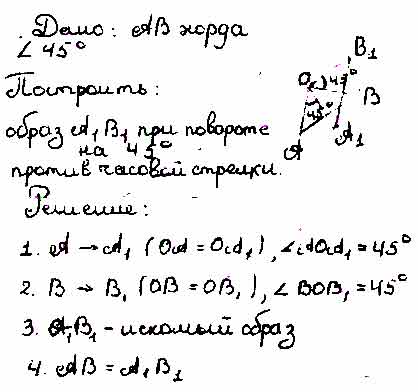 Дано: AB хорда
∠ 45°
Построить:
образ A₁B₁ при повороте
на 45°
против часовой стрелки.
Решение:
1. A → A₁ (OA = OA₁), ∠AOA₁ = 45°
2. B → B₁ (OB = OB₁), ∠BOB₁ = 45°
3. A₁B₁ - искомый образ
4. AB = A₁B₁
B₁
O 45°
B
45°
A₁
A